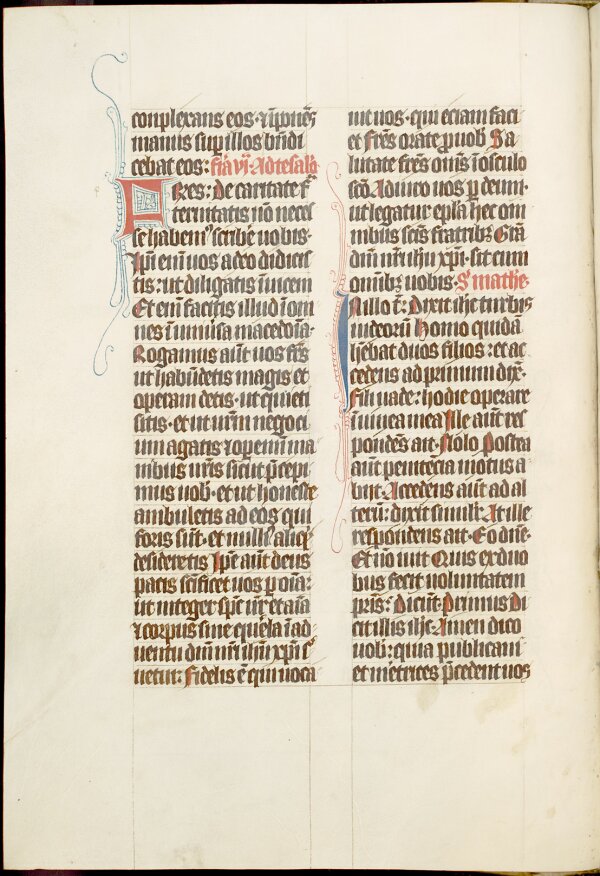 conplexans eos· ⁊ i̅pone̅s
manus sup̲ illos b̅n̅di
cebat eos: f̅ia vj· Ad tesalo̅
FRes: De caritate fr̅
ternitatis no̅ neces
se habem᷒ scribe̅ uobis·
Ip̅i eni̅ uos a deo didicis
tis: ut diligatis i̅uicem
Et eni̅ facitis illud i̅ om
nes i̅ uniu̅sa macedo̅ia·
Rogamus au̅t uos fr̅s
ut habu̅detis magis et
operam detis· ut quieti
sitis· et ut ur̅m negoci
um agatis ⁊ operem̅i ma
nibus ur̅is sicut p̅cepi
mus uob̅· et ut honeste
ambuletis ad eos qui
foris su̅t· et nulli᷒ aliq̅
desideretis Ip̅e au̅t deus
pacis sc̅ificet uos p̲ o̅ia:
ut integer sp̅c ur̅ et a̅ia
⁊ corpus sine que̅la i̅ ad
uentu dn̅i nr̅i ih̅u xp̅i s᷒
uetur: Fidelis e̅ qui uoca
uit uos· qui eciam faci
et Fr̅es orate p̲ uob̅ Sa
lutate fr̅es om̅s i̅ osculo
sc̅o Adiuro uos p̲ deum·
ut legatur ep̅la hec om
nibus sc̅is fratrib; Gr̅a
dn̅i nr̅i ih̅u xp̅i· sit cum
om̅ib; uobis· S᷒ mathe·
IN illo t̅: Dixit ih̅c turbis
iudeoru̅ Homo quida̅
h̅ebat duos filios: et ac
cedens ad primum dix̅·
Fili uade: hodie operare
i̅ uinea mea Ille au̅t res
ponde̅s ait· Nolo Postea
au̅t penite̅cia motus a
bijt· Accedens au̅t ad al
teru̅: dixit simil̅r At ille
respondens ait· Eo d̅ne·
Et no̅ iuit Quis ex duo
bus fecit uoluntatem
pr̅is: Dicu̅t Primus Di
cit illis ih̅c· Amen dico
uob̅: quia publicani
et m̅etrices p̅cedent uos